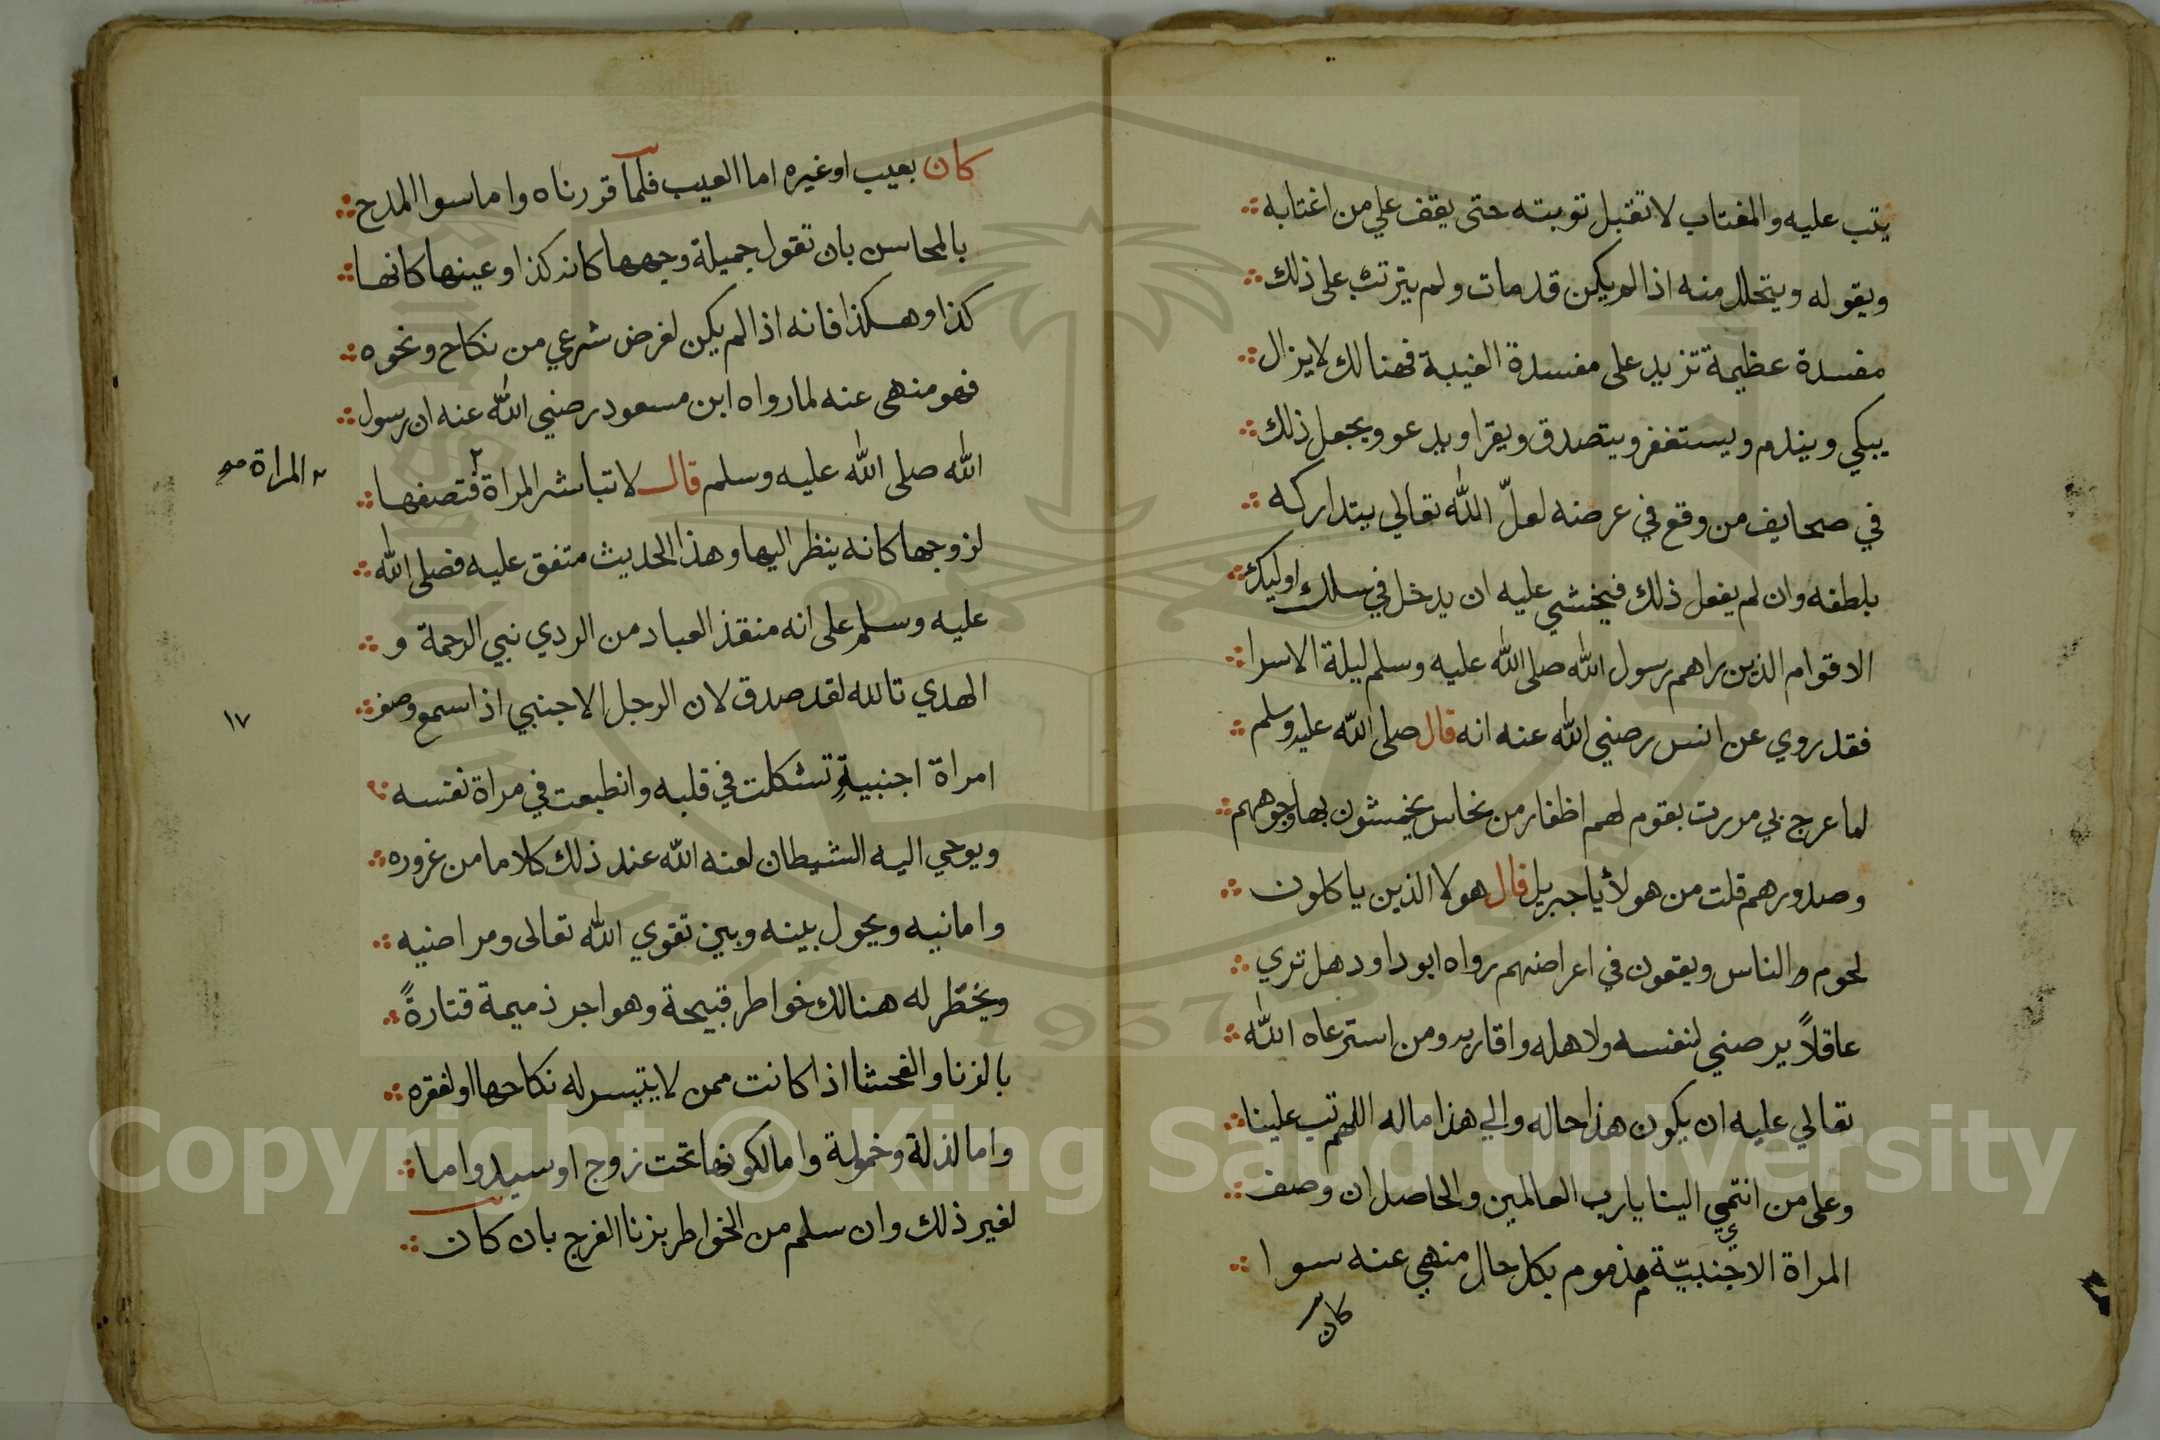 يتب عليه والمغتاب لا تقبل توبته حتى يقف علي من اغتابه
ويقوله ويتحلل منه اذا لم يكن قد مات ولم يترتب على ذلك
مفسدة عظيمة تزيد على مفسدة الغيبة فهنالك لا يزال
يبكي ويندم ويستغفر ويتصدق ويقرا ويدعو ويجعل ذلك
في صحايف من وقع في عرضه لعلّ الله تعالي يتداركه
بلطفه وان لم يفعل ذلك فيخشي عليه ان يدخل في سلك اوليك
الاقوام الذين راهم رسول الله صلى الله عليه وسلم ليلة الاسرا
فقد روي عن انس رضي الله عنه انه قال صلى الله عليه وسلم
لما عرج بي مررت بقوم لهم اظفار من نحاس يخمشون بها وجوههم
وصدورهم قلت من هولأ يا جبريل قال هولا الذين ياكلون
لحوم الناس ويقعون في اعراضهم رواه ابو داود هل تري
عاقلاً يرضي لنفسه ولاهله واقاربه ومن استرعاه الله
تعالي عليه ان يكون هذا حاله والي هذا ماله اللهم تب علينا
وعلى من انتمي الينا يا رب العالمين والحاصل ان وصف
المراة الاجنبيّة مذموم بكل حال منهي عنه سوا
كان
كان بعيب او غيره اما العيب فلما قررناه واما سوا المدح
بالمحاسن بان تقول جميلة وجهها كانه كذا وعينها كانها
كذا وهكذا فانه اذا لم يكن لغرض شرعي من نكاح ونحوه
فهو منهى عنه لما رواه ابن مسعود رضي الله عنه ان رسول
الله صلى الله عليه وسلم قال لا تباشر المراة فتصفها
المراة صح
لزوجها كانه ينظر اليها وهذا الحديث متفق عليه فصلى الله
عليه وسلم على انه منقذ العباد من الردي نبي الرحمة و
الهدي تالله لقد صدق لان الرجل الاجنبي اذا سمع وصف
١٧
امراة اجنبيةٍ تشكلت في قلبه وانطبعت في مراة نفسه
ويوحي اليه الشيطان لعنه الله عند ذلك كلاما من غروره
وامانيه ويحول بينه وبين تقوي الله تعالى ومراضيه
ويخطر له هنالك خواطر قبيحة وهواجر ذميمة فتارةً
بالزنا والفحشا اذا كانت ممن لا يتيسر له نكاحها او لفقره
واما لذلة وخمولة واما لكونها تحت زوج او سيد واما
لغير ذلك وان سلم من الخواطر بزنا الفرج بان كان
Copyright © King Saud University
1957